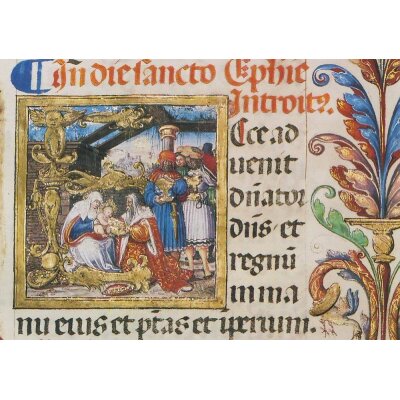 ¶ In die sancto Ephie
Introitꝰ.
Ecce ad
uenit
dn̄ator
dn̄s et
regnū
in ma
nu eius et ptās et iperium.